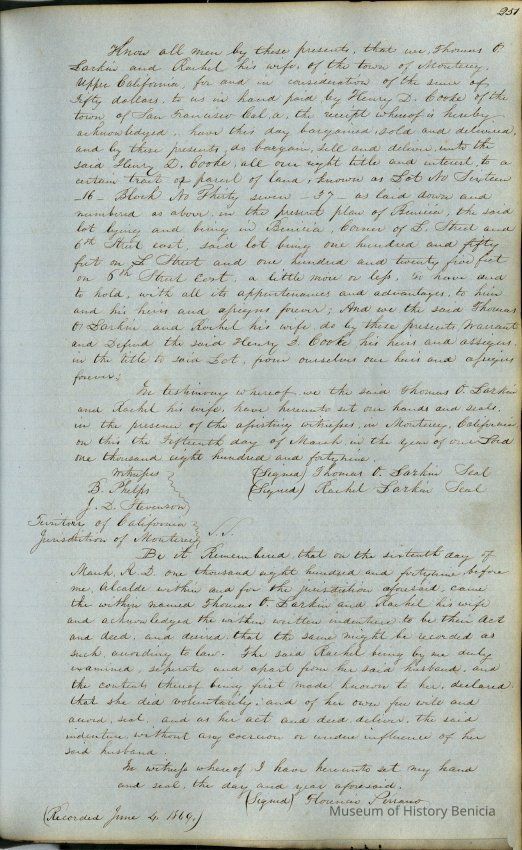 251
Know all men by these presents, that we, Thomas O.
Larkin and Rachel his wife, of the town of Monterey,
Upper California, for and in consideration of the sum of
Fifty dollars, to us in hand paid by Henry D. Cooke of the
town of San Francisco Cal.a, the receipt whereof is hereby
acknowledged, have this day bargained, sold and delivered,
and by these presents, do bargain, sell and deliver, unto the
said Henry D. Cooke, all our right title and interest, to a
certain tract or parcel of land, known as Lot No Sixteen
-16- Block No Thirty seven -37- as laid down and
numbered as above, in the present plan of Benicia, the said
lot lying and being in Benicia, Corner of L. Street and
6th Street east, said lot being one hundred and fifty
feet on L Street and one hundred and twenty five feet
on 6th Street East, a little more or less, To have and
to hold, with all its appurtenances and advantages, to him
and his heirs and assigns forever; And we the said Thomas
O Larkin and Rachel his wife do by these presents, Warrant
and Defend the said Henry D. Cooke his heirs and assigns,
in the title to said Lot, from ourselves our heirs and assigns
forever;
In testimony whereof, we the said Thomas O. Larkin
and Rachel his wife, have hereunto set our hands and seals,
in the presence of the assisting witnesses, in Monterey, California
on this the Fifteenth day of March in the year of our Lord
one thousand eight hundred and fortynine.
Witnesses (Signed) Thomas O. Larkin Seal
B. Phelps (Signed) Rachel Larkin Seal
J. D. Stevenson
Territory of California
Jurisdiction of Monterey S.S.
Be it Remembered, that on the sixteenth day of
March, A.D. one thousand eight hundred and fortynine before
me, Alcalde within and for the jurisdiction aforesaid, came
the within named Thomas O. Larkin and Rachel his wife
and acknowledged the within written indenture to be their Act
and deed, and desired that the same might be recorded as
such, according to law. The said Rachel being by me duly
examined, seperate and apart from her said husband, and
the contents thereof being first made known to her, declared
that she did voluntarily, and of her own free will and
accord, seal, and as her act and deed deliver, the said
indenture without any coercion or undue influence of her
said husband.
In witness whereof I have hereunto set my hand
and seal, the day and year aforesaid.
(Signed) Florencio Serrano
(Recorded June 4. 1869.)
Museum of History Benicia